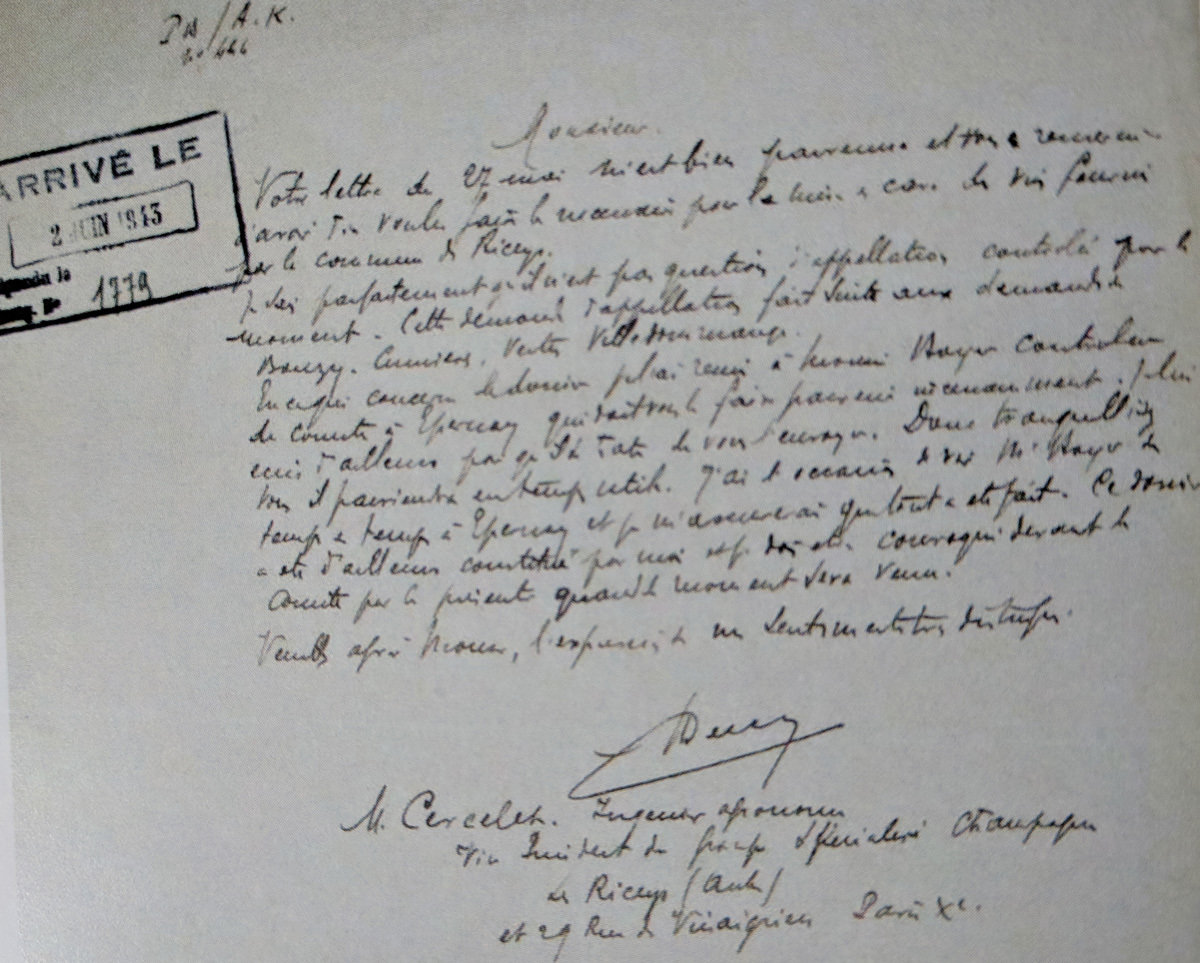 A.K.
ARRIVÉ LE
2 JUIN 1943
1779
Monsieur.
Votre lettre du 27 mai m'est bien parvenue et vous remercie
d'avoir bien voulu faire le nécessaire pour la mise a cave du vin fourni
par la commune des Riceys.
Je sais parfaitement qu'il n'est pas question d'appellation controlée pour le
moment. Cette demande d'appellation fait suite aux demandes de
Bouzy. Cumieres. Vertus Villedommange.
En ce qui concerne le dossier je l'ai remis à Monsieur Bayer Controleur
du Comité à Epernay qui doit vous le faire parvenir. Je lui
d'ailleurs pas de vous l'envoyer. Donc tranquillisez
vous il parviendra en temps utile. J'ai l'occasion de voir Mr Bayer de
temps a temps à Epernay et je m'assurerai que tout a été fait. Ce dossier
a été d'ailleurs constitué par moi et je dois etre convoqué devant le
Comité pour le présenter quand le moment sera venu.
Veuillez agréer Monsieur, l'expression de mes sentiments très distingués.
M. Cercelet. Ingenieur agronome
Vice President du Groupe Spécialisé Champagne
Les Riceys (Aube)
et 29 Rue des Vinaigriers Paris Xe.